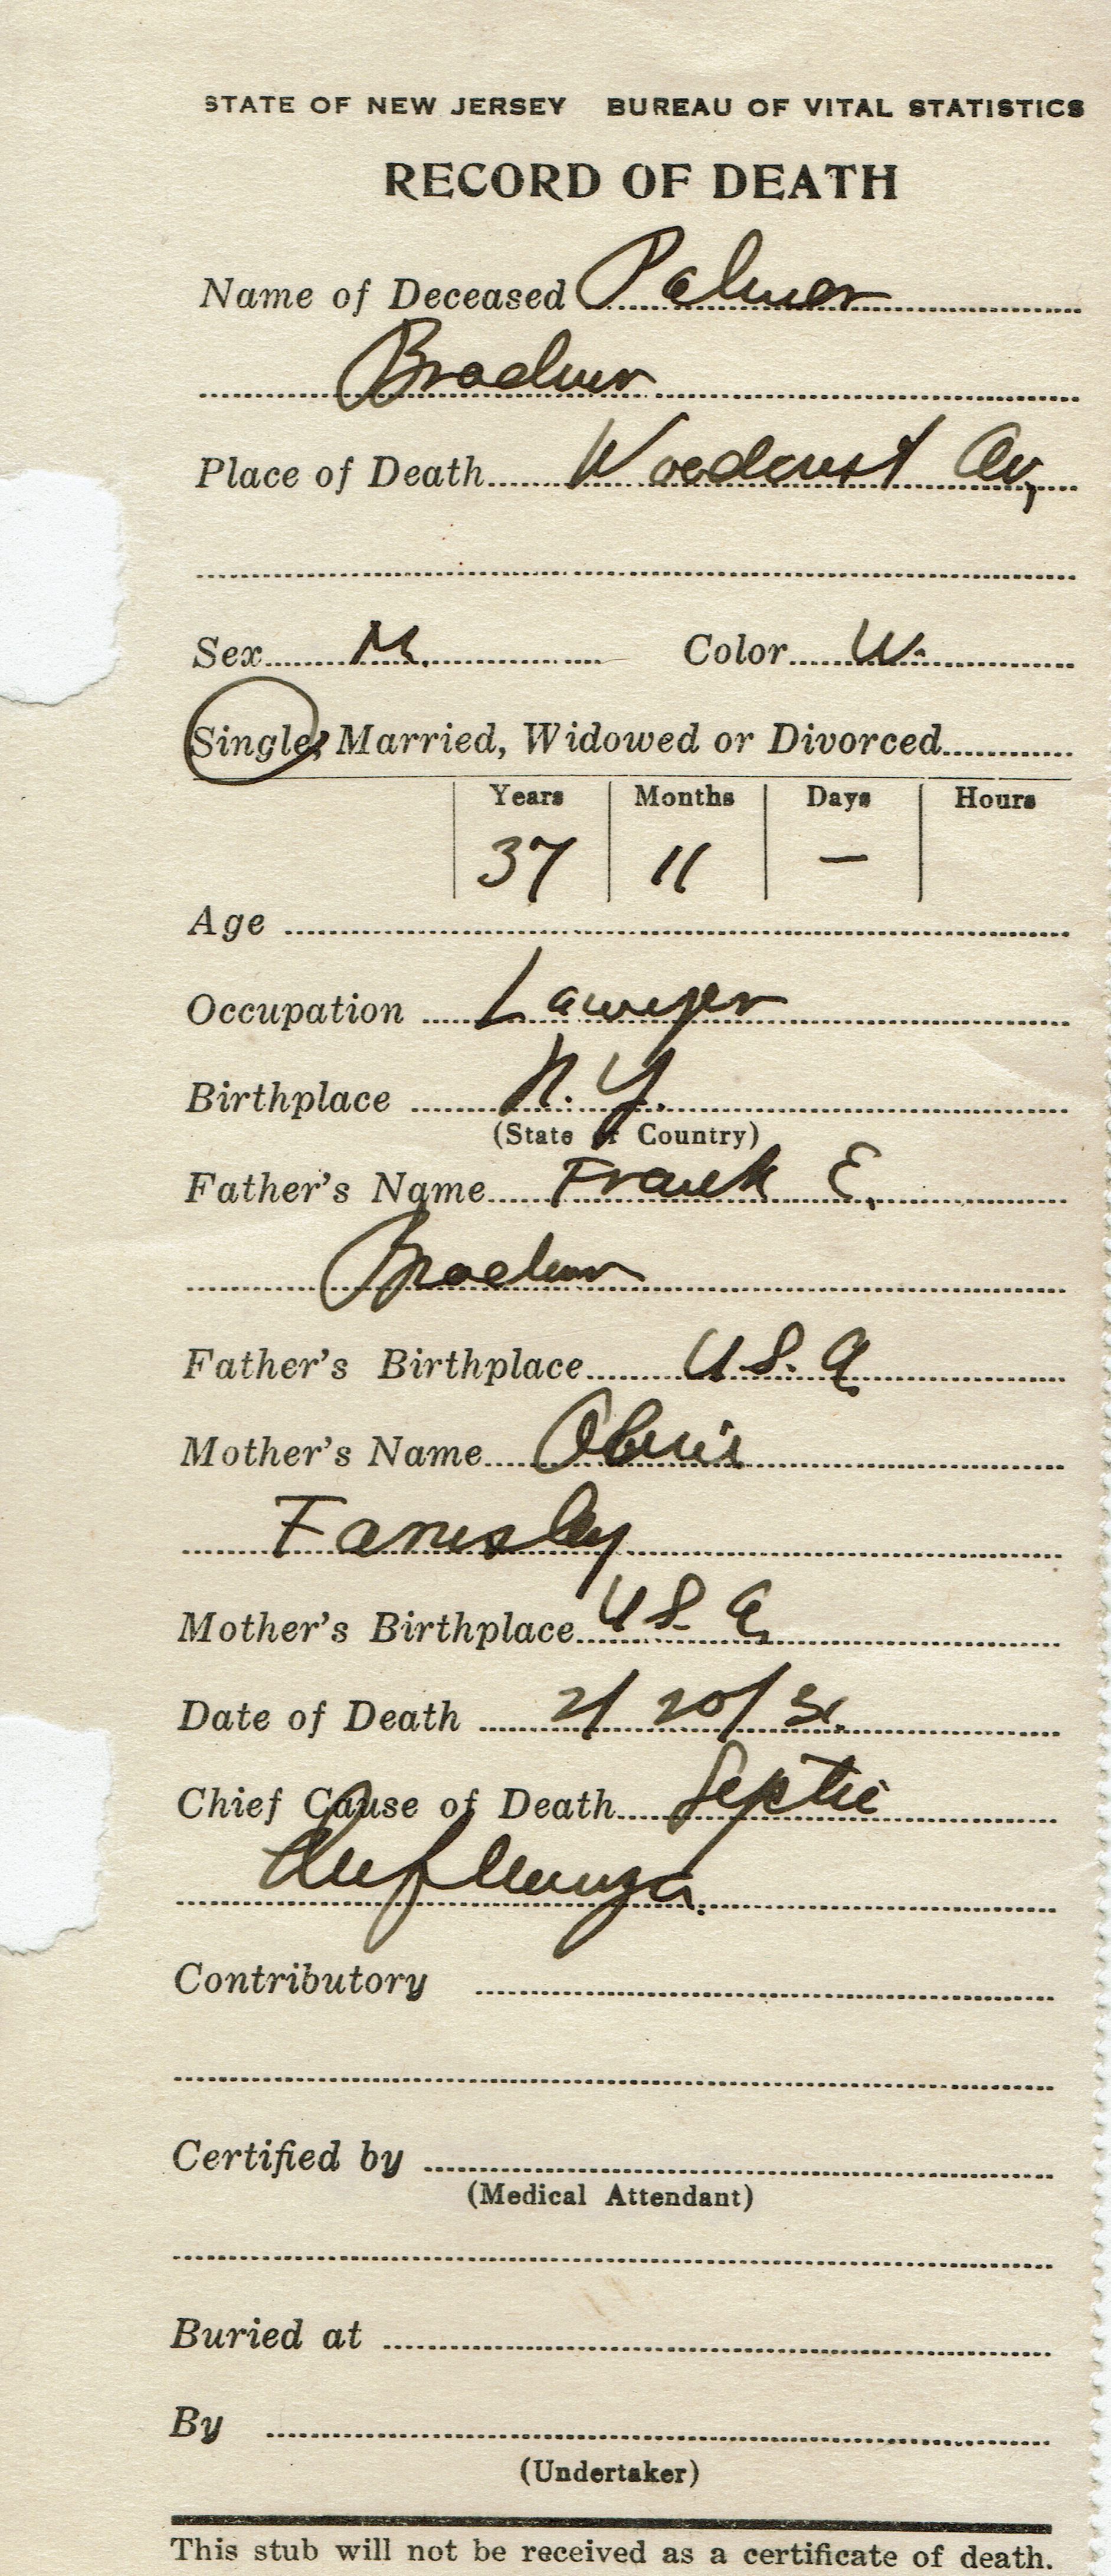 STATE OF NEW JERSEY BUREAU OF VITAL STATISTICS
RECORD OF DEATH
Name of Deceased Palmer
Bradner
Place of Death Woodcrest Av,
Sex M. Color W.
Single, Married, Widowed or Divorced
Years Months Days Hours
37 11 —
Age
Occupation Lawyer
Birthplace N.Y.
(State or Country)
Father's Name Frank E.
Bradner
Father's Birthplace U.S.A
Mother's Name
Mother's Birthplace U.S.A
Date of Death 2/20/31.
Chief Cause of Death Septic
Influenza.
Contributory
Certified by
(Medical Attendant)
Buried at
By
(Undertaker)
This stub will not be received as a certificate of death.